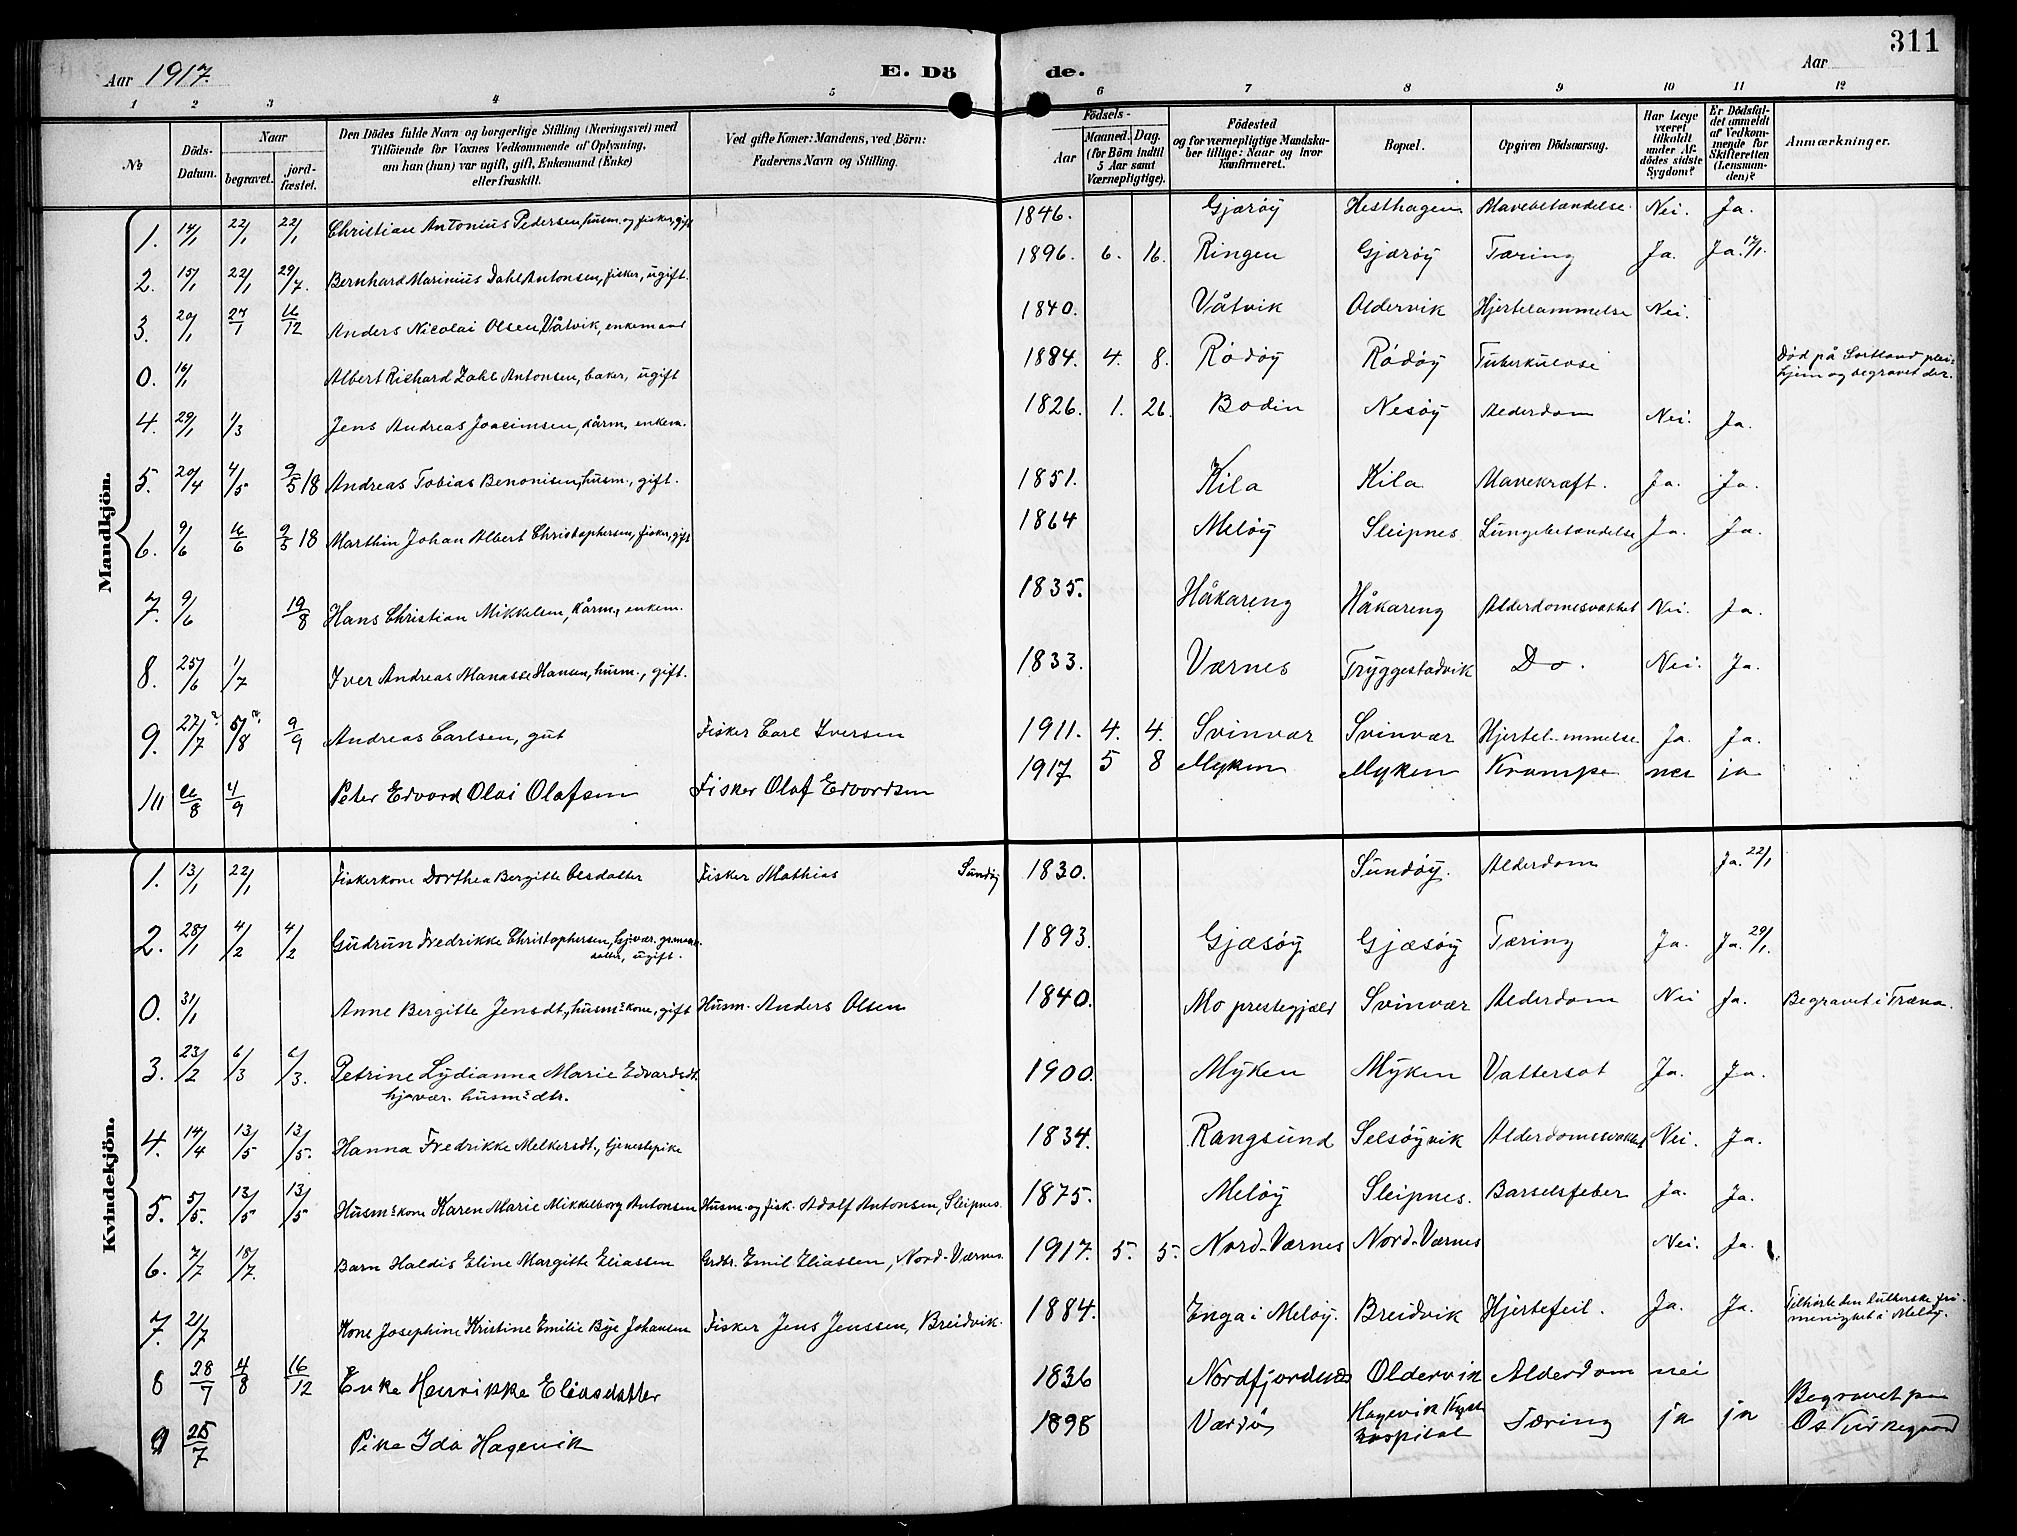 311
Aar 1917. E. Dö de. Aar
1 2 3 4 5 6 7 8 9 10 11 12
№ Döds-Datum. Naar begravet. jord-fæstet. Den Dödes fulde Navn og borgerlige Stilling (Næringsvei) med Tilföiende for Voxnes Vedkommende af Oplysning, om han (hun) var ugift, gift, Enkemand (Enke) eller fraskilt. Ved gifte Koner: Mandens, ved Börn: Faderens Navn og Stilling. Födsels- Aar Maaned. Dag. (for Börn indtil 5 Aar samt Værnepligtige). Födested og for værnepligtige Mandskaber tillige: Naar og hvor konfirmeret. Bopæl. Opgiven Dödsaarsag. Har Læge været tilkaldt under Afdödes sidste Sygdom? Er Dödsfaldet anmeldt af Vedkommende for Skifteretten (Lensmanden)? Anmærkninger.
Mandkjön.
1. 14/1 22/1 22/1 Christian Antonius Pedersen, husm. og fisker, gift 1846. Gjærøy Hesthagen Mavebetændelse. Nei. Ja.
2. 15/1 22/1 29/7. Bernhard Marinius Dahl Antonsen, fisker, ugift. 1896. 6. 16. Ringen Gjærøy Tæring Ja. Ja. 17/1.
3. 20/1 27/1 16/12 Anders Nicolai Olsen, Våtvik, enkemand 1840. Våtvik Oldervik Hjertelammelse Nei.
0. 16/1 Albert Richard Zahl Antonsen, baker, ugift 1884. 4. 8. Rødøy Rødøy Tuberkulose Død på Sortland pleiehjem og begravet der.
4. 29/1 1/3 Jens Andreas Joacimsen, kårm., enkem. 1826. 1. 26. Bodin Nesøy Alderdom Nei. Ja.
5. 20/4 4/5 9/5 18 Andreas Tobias Benonisen, husm., gift. 1851. Kila Kila Mavekræft. Ja. Ja.
6. 9/6 16/6 9/5 18 Marthin Johan Albert Christophersen, fisker, gift 1864 Meløy Sleipnes Lungebetændelse Ja. Ja.
7. 9/6 19/8 Hans Christian Mikkelsen, kårm., enkem. 1835. Håkareng Håkareng Alderdomssvakhet Nei. Ja.
8. 25/6 1/7 Iver Andreas Manasse Hansen, husm., gift. 1833. Værnes Tryggestadvik Do. Nei. Ja.
9. 27/7 5/8 9/9 Andreas Carlsen, gut Fisker Carl Iversen 1911. 4. 4. Svinvær Svinvær Hjertel.mmelse Ja. Ja.
10 16/8 4/9 Peter Edvard Olai Olafsen Fisker Olaf Edvardsen 1917 5 8 Myken Myken Krampe nei ja
Kvindekjön.
1. 13/1 22/1 Fiskerkone Dorthea Bergitte Olsdatter Fisker Mathias Sundøy 1830. Sundøy. Alderdom Ja. 22/1
2. 28/1 4/2 4/2 Gudrun Fredrikke Christophersen, hj.vær. datter, ugift. 1893. Gjæsøy Gjæsøy Tæring Ja. Ja. 29/1.
0. 31/1 Anne Bergitte Jensdt., husm.s kone, gift Husm. Anders Olsen 1840. Mo prestegjæld Svinvær Alderdom Nei Ja. Begravet i Træna.
3. 23/2 6/3 6/3. Petrine Lydianna Marie Edvardsdt. hj.vær. husm.s dtr. 1900. Myken Myken Vattersot Ja. Ja.
4. 14/4 13/5 13/5. Hanna Fredrikke Melkersdt., tjenestepike 1834. Rangsund Selsøyvik Alderdomssvakhet Nei. Ja.
5. 5/5. 13/5 13/5 Husm.s kone Karen Marie Mikkelborg Antonsen Husm. og fisk. Adolf Antonsen, Sleipnes. 1875. Meløy Sleipnes. Barselsfeber Ja. Ja.
6. 7/7 18/7. Barn Haldis Eline Margitte Eliassen Grdbr. Emil Eliassen, Nord-Værnes. 1917. 5. 5. Nord-Værnes Nord-Værnes Nei. Ja.
7. 21/7 Kone Josephine Kristine Emilie Bye Johansen Fisker Jens Jenssen, Breidvik. 1884. Enga i Meløy. Breidvik Hjertefeil. Ja. Ja. Tilhørte den lutherske frimenighet i Meløy.
8 28/7 4/8 16/12 Enke Henrikke Eliasdatter 1836 Nordfjordnes Oldervik Alderdom nei
9 25/7 Pike Ida Hagevik 1898 Værdø Hagevik Kysthospital Tæring ja ja Begravet paa Os Kirkegaard